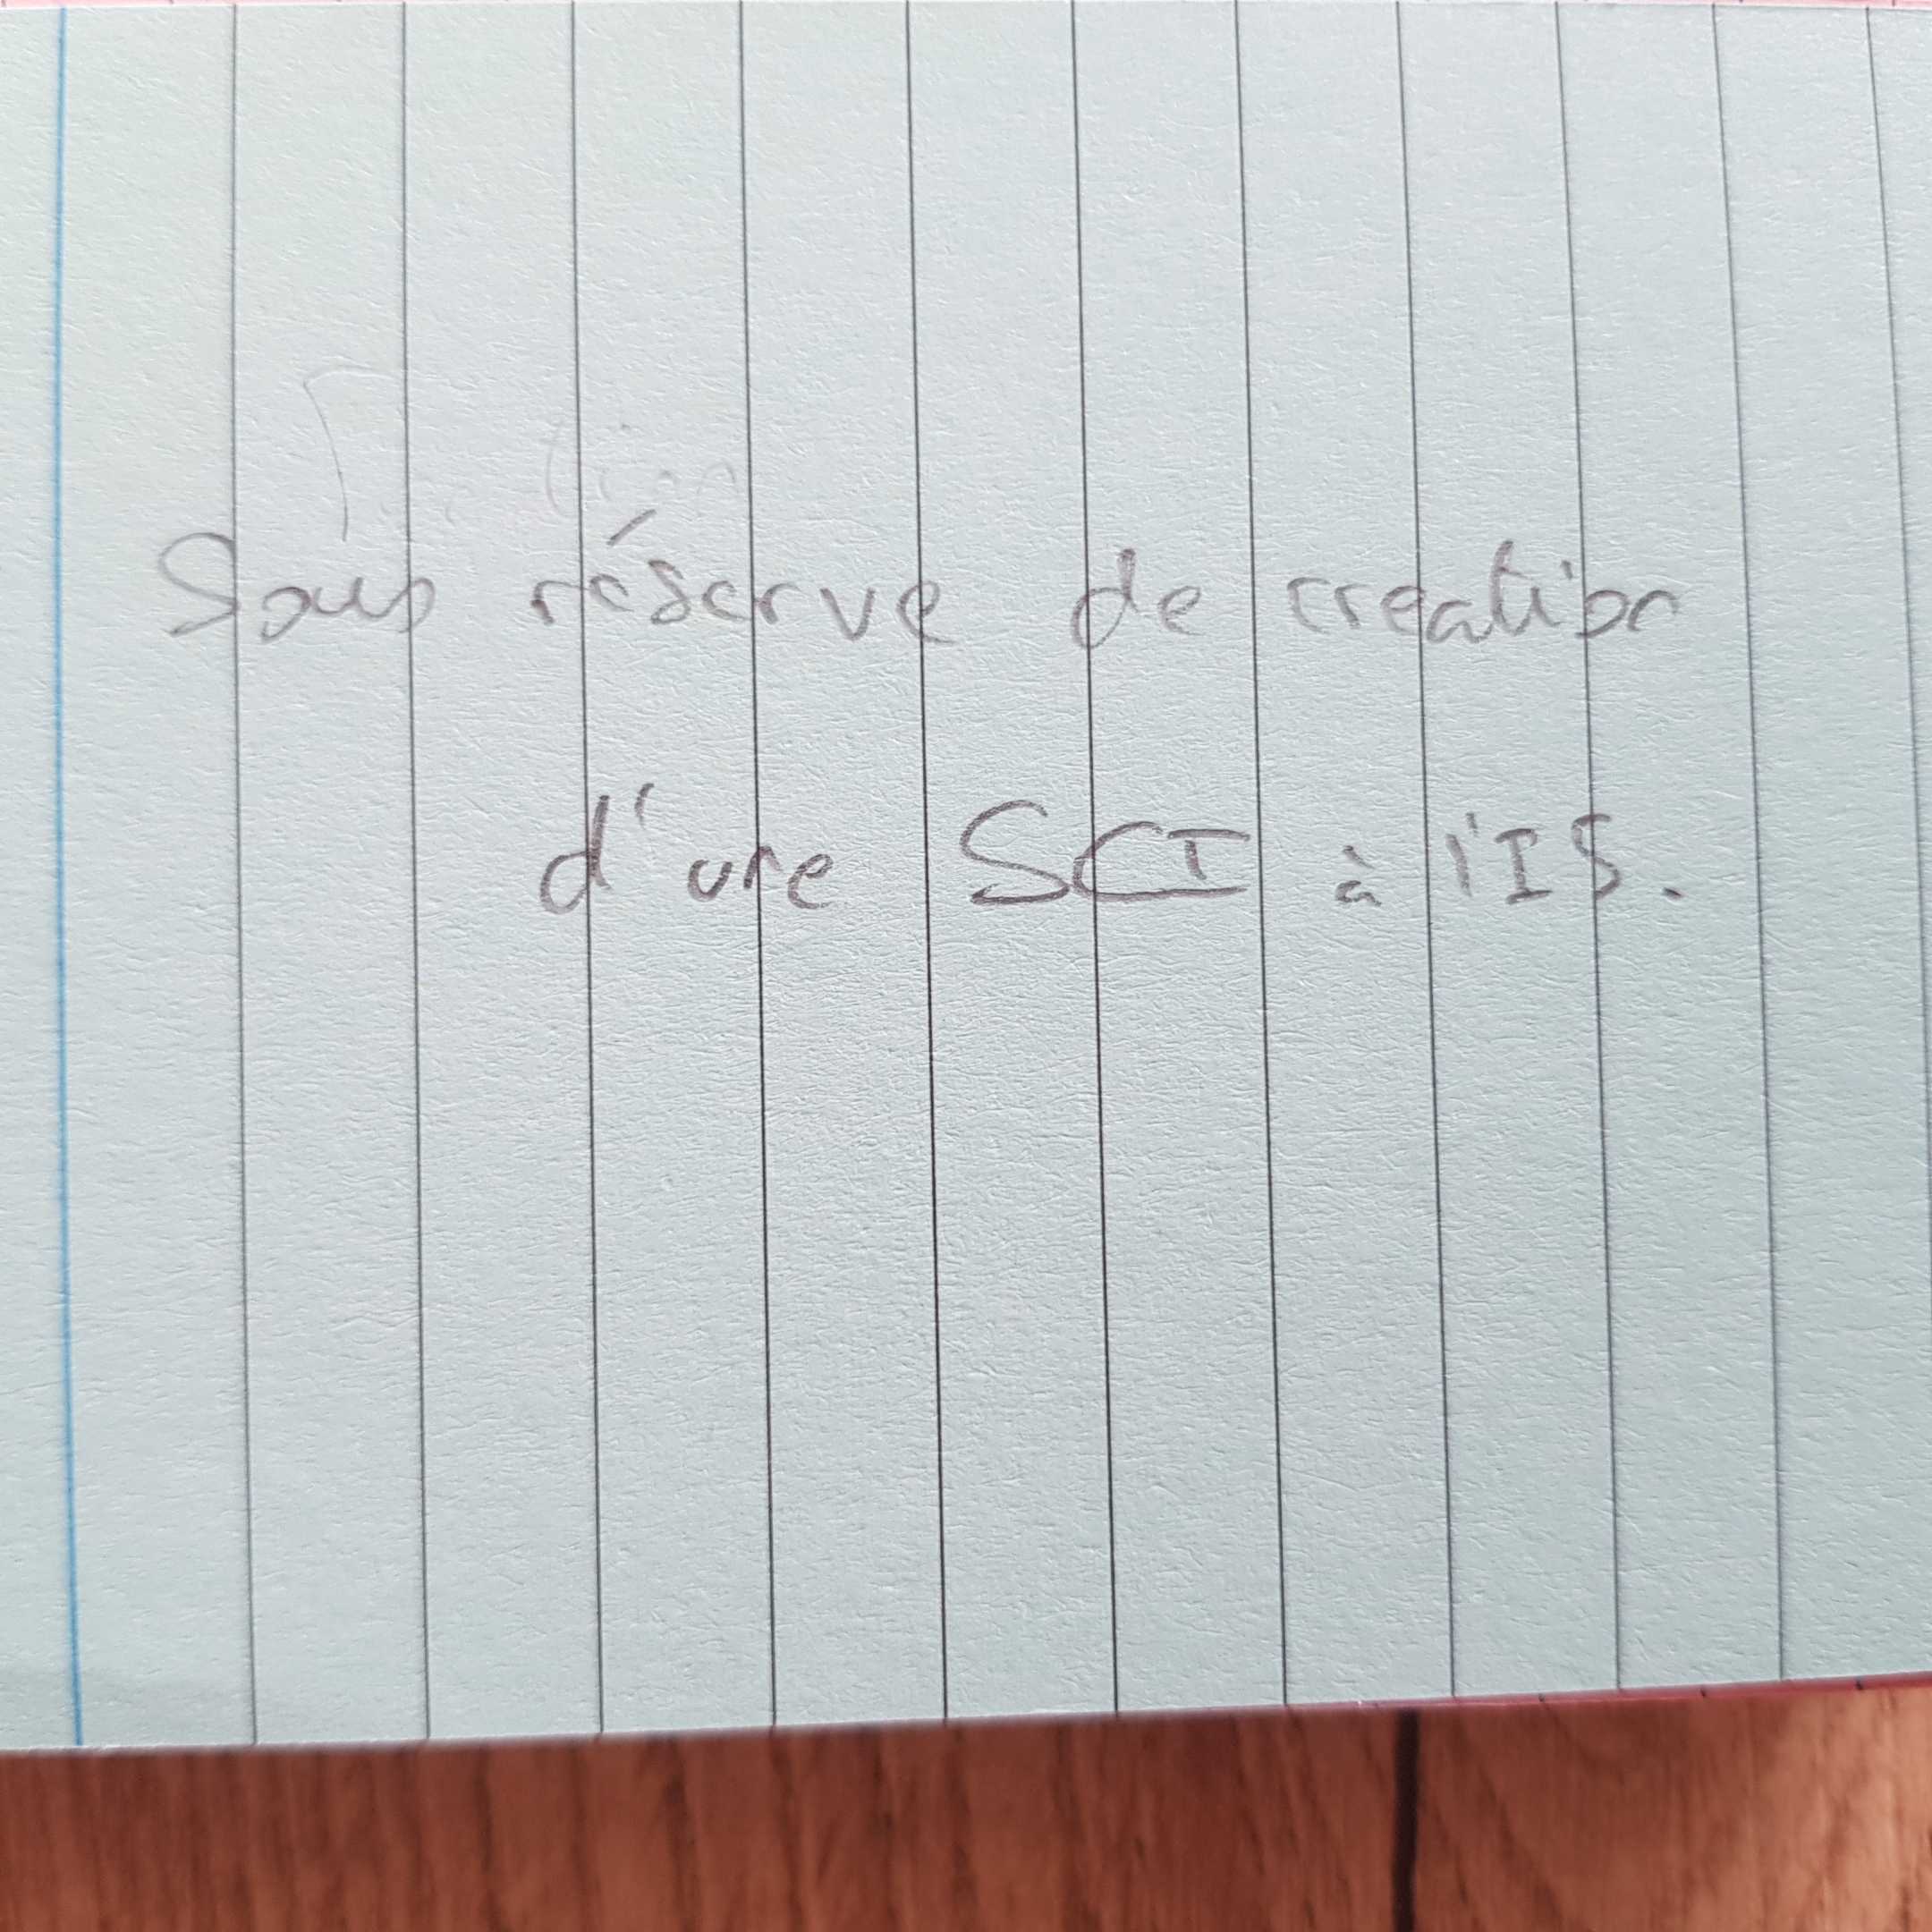 Sous réserve de creation
d'une SCI à l'IS.